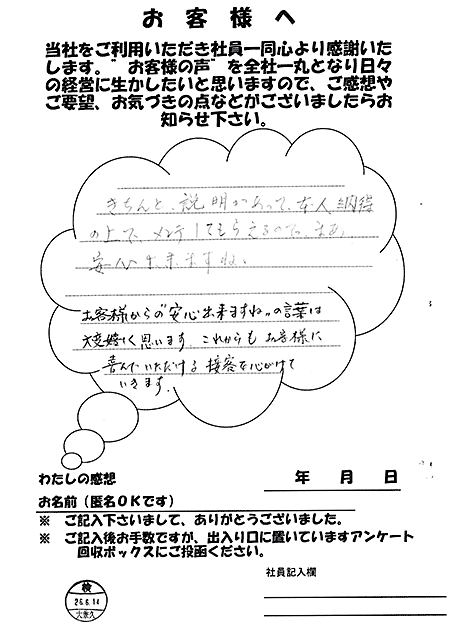 お客様へ
当社をご利用いただき社員一同心より感謝いた
します。"お客様の声"を全社一丸となり日々
の経営に生かしたいと思いますので、ご感想や
ご要望、お気づきの点などがございましたらお
知らせ下さい。
きちんと、説明があって、本人納得
の上で、メンテしてもらえるので、まあ、
安心出来ますね。
お客様からの"安心出来ますね"の言葉は
大変嬉しく思います。これからもお客様に
喜んでいただける接客を心がけて
いきます。
わたしの感想
年 月 日
お名前（匿名OKです）
※ ご記入下さいまして、ありがとうございました。
※ ご記入後お手数ですが、出入り口に置いていますアンケート
回収ボックスにご投函ください。
社員記入欄
検
26.6.14